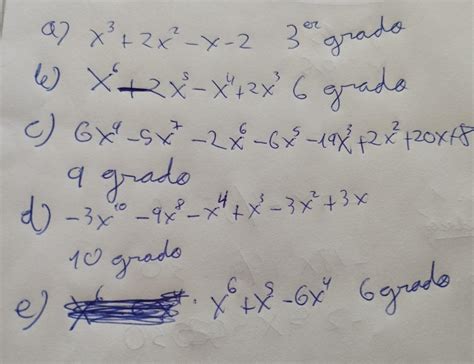 a) x³ + 2x² - x - 2 3er grado
b) x⁶ + 2x⁵ - x⁴ + 2x³ 6 grado
c) 6x⁹ - 5x⁷ - 2x⁶ - 6x⁵ - 19x³ + 2x² + 20x + 8
9 grado
d) -3x¹⁰ - 9x⁸ - x⁴ + x³ - 3x² + 3x
10 grado
e) x⁶ + x⁵ - 6x⁴ 6 grado